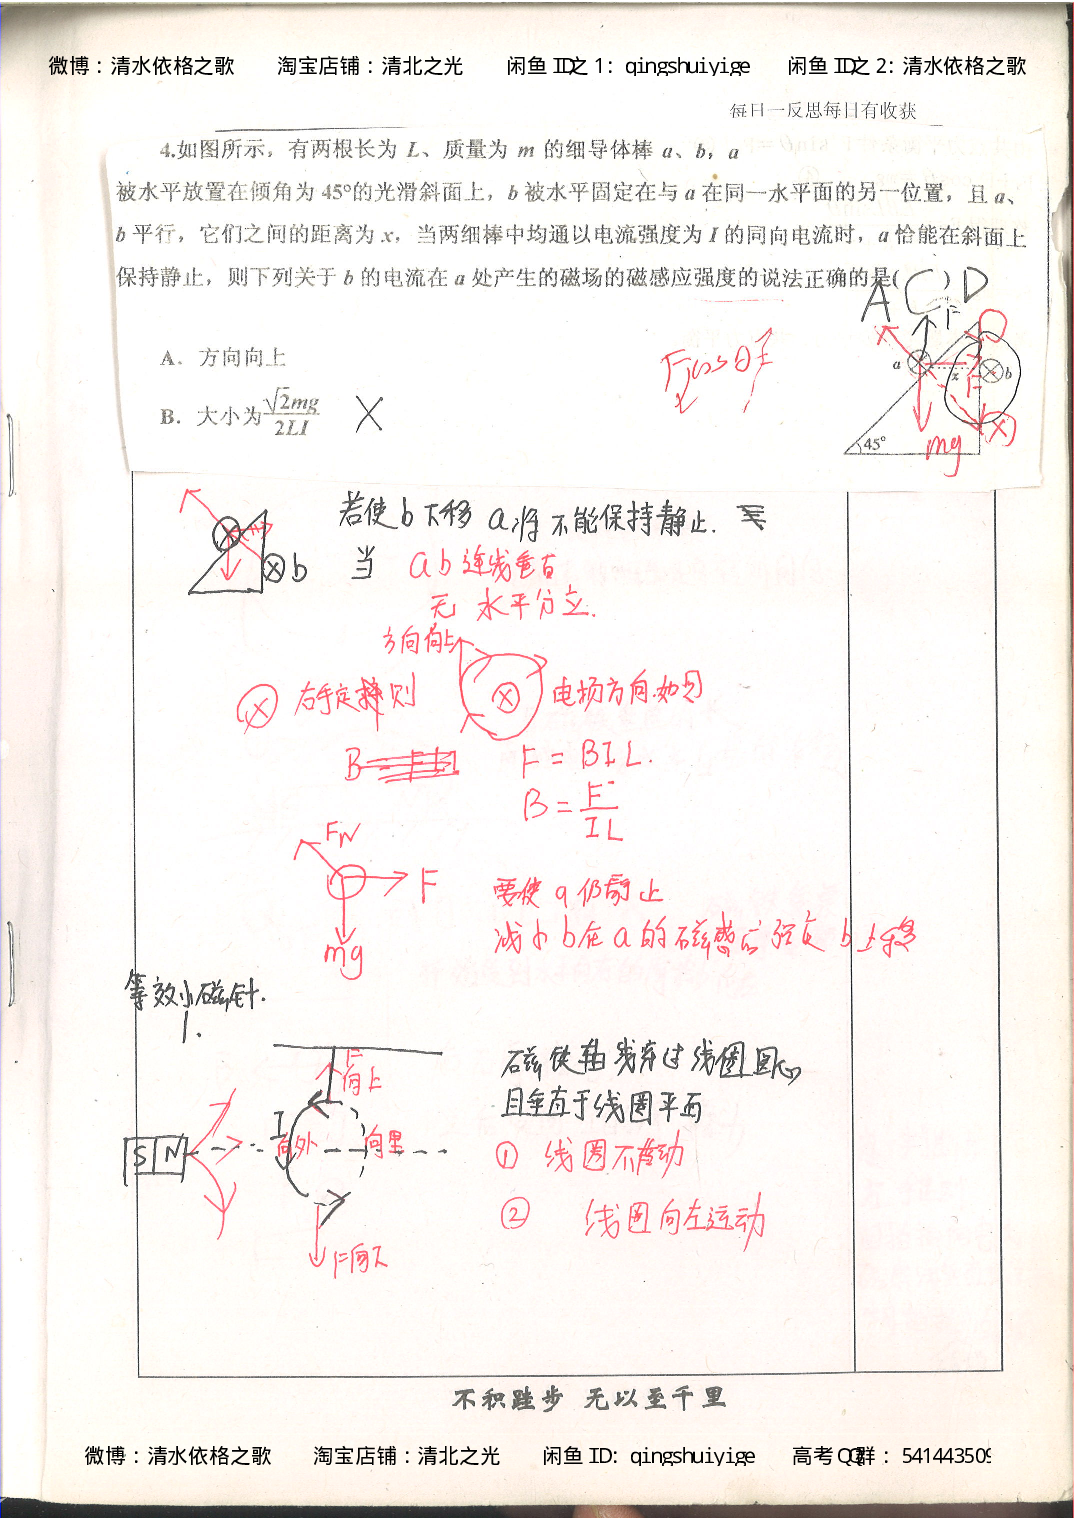 微博：清水依格之歌 淘宝店铺：清北之光 闲鱼 ID之 1: qingshuiyige 闲鱼 ID之 2: 清水依格之歌
每日一反思每日有收获
4.如图所示，有两根长为 L、质量为 m 的细导体棒 a、b，a
被水平放置在倾角为 45°的光滑斜面上，b 被水平固定在与 a 在同一水平面的另一位置，且 a、
b 平行，它们之间的距离为 x，当两细棒中均通以电流强度为 I 的同向电流时，a 恰能在斜面上
保持静止，则下列关于 b 的电流在 a 处产生的磁场的磁感应强度的说法正确的是( )
A C D
A．方向向上
B．大小为√2mg/2LI ×
F
a x b
F
45° mg
若使b下移 a将不能保持静止.
b 当 ab连线垂直
无 水平分立.
方向向上
右手定择则 电场方向如图
B= F = BIL.
B = F/IL
FN
F
mg
要使a仍静止
减小b在a的磁感应强度 b上移
等效小磁针.
1.
F向上
磁铁轴线穿过线圈圆心
且垂直于线圈平面
S N I 向外 向里
① 线圈不转动
② 线圈向左运动
F向下
不积跬步 无以至千里
微博：清水依格之歌 淘宝店铺：清北之光 闲鱼 ID: qingshuiyige 高考 QQ群： 541443509